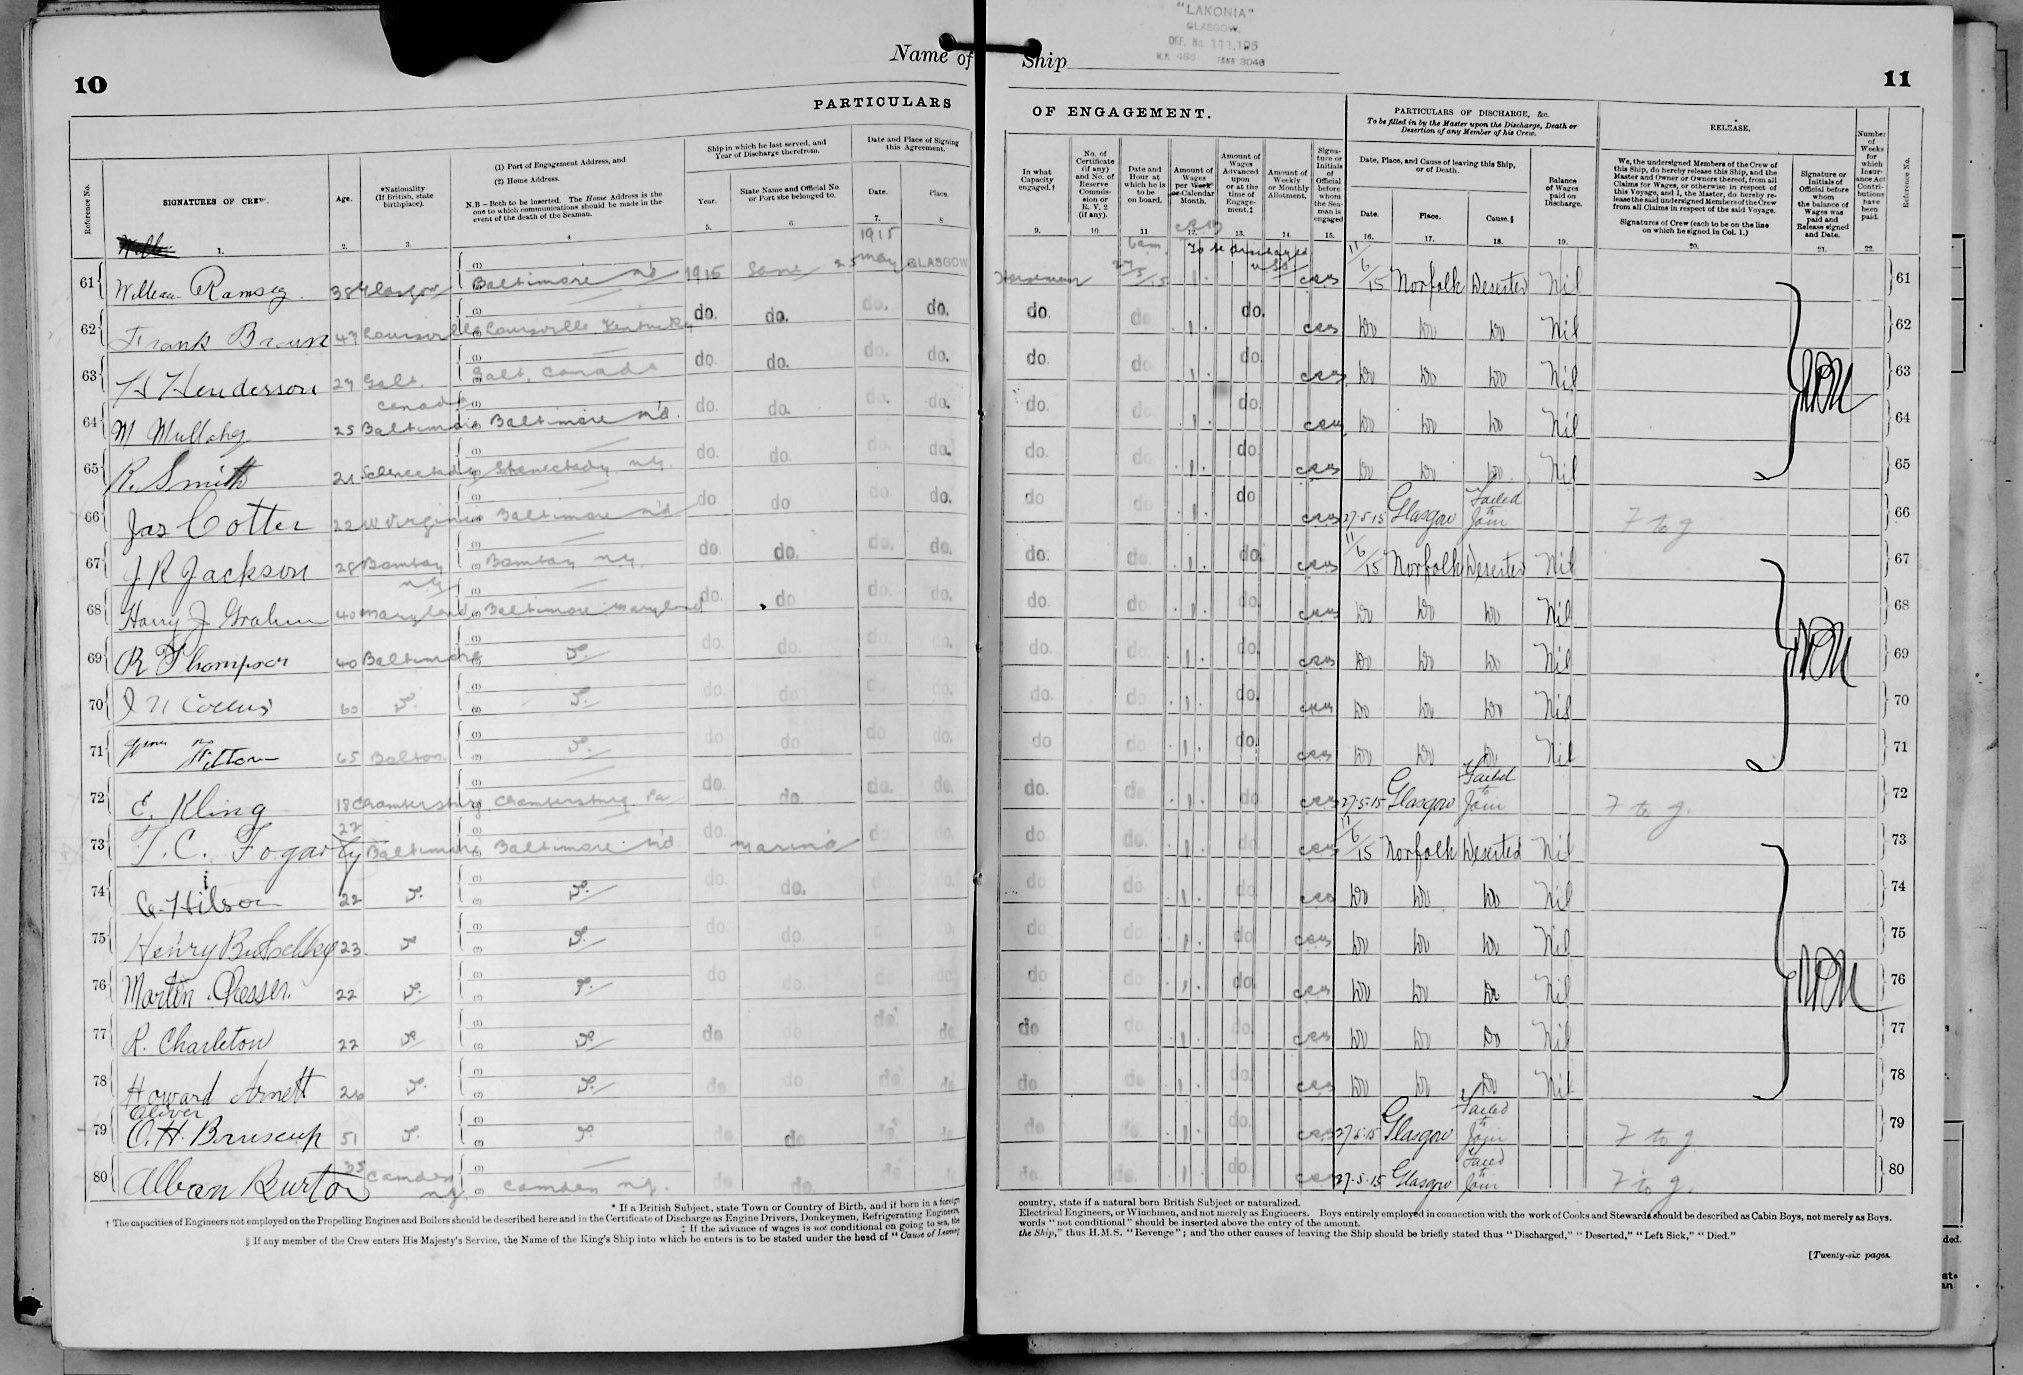 10
Name of Ship
"LAKONIA"
GLASGOW.
OFF. No. 111,195
11
PARTICULARS OF ENGAGEMENT.
PARTICULARS OF DISCHARGE, &c.
To be filled in by the Master upon the Discharge, Death or Desertion of any Member of his Crew.
RELEASE.
Reference No.
SIGNATURES OF CREW.
Age.
*Nationality (If British, state birthplace).
(1) Port of Engagement Address, and
(2) Home Address.
N.B—Both to be inserted. The Home Address is the one to which communications should be made in the event of the death of the Seaman.
Ship in which he last served, and Year of Discharge therefrom.
Year.
State Name and Official No. or Port she belonged to.
Date and Place of Signing this Agreement.
Date.
Place.
In what Capacity engaged.†
No. of Certificate (if any) and No. of Reserve Commission or R. V. 2 (if any).
Date and Hour at which he is to be on board.
Amount of Wages per Week or Calendar Month.
Amount of Wages Advanced upon or at the time of Engagement.‡
Amount of Weekly or Monthly Allotment.
Signature or Initials of Official before whom the Seaman is engaged
Date, Place, and Cause of leaving this Ship, or of Death.
Date.
Place.
Cause.§
Balance of Wages paid on Discharge.
We, the undersigned Members of the Crew of this Ship, do hereby release this Ship, and the Master and Owner or Owners thereof, from all Claims for Wages, or otherwise in respect of this Voyage, and I, the Master, do hereby release the said undersigned Members of the Crew from all Claims in respect of the said Voyage.
Signatures of Crew (each to be on the line on which he signed in Col. 1.)
Signature or Initials of Official before whom the balance of Wages was paid and Release signed and Date.
Number of Weeks for which Insurance Act Contributions have been paid.
Reference No.
1. 2. 3. 4 5. 6. 7. 8 9. 10. 11 12. 13. 14. 15. 16. 17. 18. 19. 20. 21. 22.
61 William Ramsey 38 Glasgow Baltimore Md 1915 Same 1915 25 May GLASGOW Horseman 6am 27/5/15 To be discharged USA 1. 11/6/15 Norfolk Deserted Nil 61
62 Frank Braun 47 Louisville Louisville Kentucky do. do. do. do. do. do 1. do. Do Do Do Nil 62
63 H Henderson 27 Galt. Canada Galt, Canada do. do. do. do. do. do 1. do. Do Do Do Nil 63
64 M Mullahy 25 Baltimore Baltimore Md. do. do. do. do. do. do 1. do. Do Do Do Nil 64
65 R. Smith 21 Schenectady Schenectady N.Y. do. do. do. do. do. do 1. do. Do Do Do Nil 65
66 Jas Cotter 22 W Virginia Baltimore Md do. do do. do. do do 1. do 27-5-15 Glasgow Failed to Join 7 to g 66
67 J R Jackson 28 Bombay N.Y. Bombay N.Y. do. do. do. do. do. do 1. do. 11/6/15 Norfolk Deserted Nil 67
68 Harry J Graham 40 Maryland Baltimore Maryland do. do do. do. do. do 1. do. Do Do Do Nil 68
69 R Thompson 40 Baltimore Do. do. do. do. do. do. do. 1. do. Do Do Do Nil 69
70 60 Do. Do. do. do do. do. do. do 1. do. Do Do Do Nil 70
71 65 Bolton. Do. do do do do. do do 1. do. Do Do Do Nil 71
72 E. Kling 18 Chambersburg Chambersburg Pa do. do do. do. do. do 1. do 27-5-15 Glasgow Failed to Join 7 to g. 72
73 T. C. Fogarty 22 Baltimore Baltimore Md do. Marina do do. do do. 1. do 11/6/15 Norfolk Deserted Nil 73
74 G. Hilson 22 Do. Do. do. do. do do. do do 1. do Do Do Do Nil 74
75 Henry 23 Do Do. do do. do do 1 do Do Do Do Nil 75
76 Martin Chesser. 22 Do. Do. do do. do do do do 1. do. Do Do Do Nil 76
77 R. Charleton 22 Do Do do do do. do do do 1. do. Do Do Do Nil 77
78 Howard Arnett 26 Do. Do. do do do. do do do 1. do. Do Do Do Nil 78
79 Oliver O. H. Bruscup 51 Do. Do. do do do. do do do. 1. do. 27-5-15 Glasgow Failed to Join 7 to g 79
80 Alban Burton 35 Camden N.J. Camden N.J. do do. do. do do. do. 1 do. 27-5-15 Glasgow Failed to Join 7 to g. 80
* If a British Subject, state Town or Country of Birth, and if born in a foreign country, state if a natural born British Subject or naturalized.
† The capacities of Engineers not employed on the Propelling Engines and Boilers should be described here and in the Certificate of Discharge as Engine Drivers, Donkeymen, Refrigerating Engineers, Electrical Engineers, or Winchmen, and not merely as Engineers. Boys entirely employed in connection with the work of Cooks and Stewards should be described as Cabin Boys, not merely as Boys.
‡ If the advance of wages is not conditional on going to sea, the words "not conditional" should be inserted above the entry of the amount.
§ If any member of the Crew enters His Majesty's Service, the Name of the King's Ship into which he enters is to be stated under the head of "Cause of Leaving the Ship," thus H.M.S. "Revenge"; and the other causes of leaving the Ship should be briefly stated thus "Discharged," "Deserted," "Left Sick," "Died."
[Twenty-six pages.